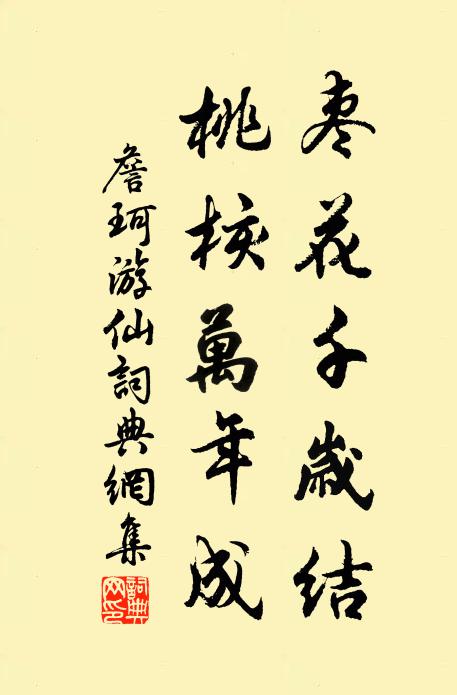 枣花千歲结
桃核萬年成
詹珂游仙詞典網集
詞典网印